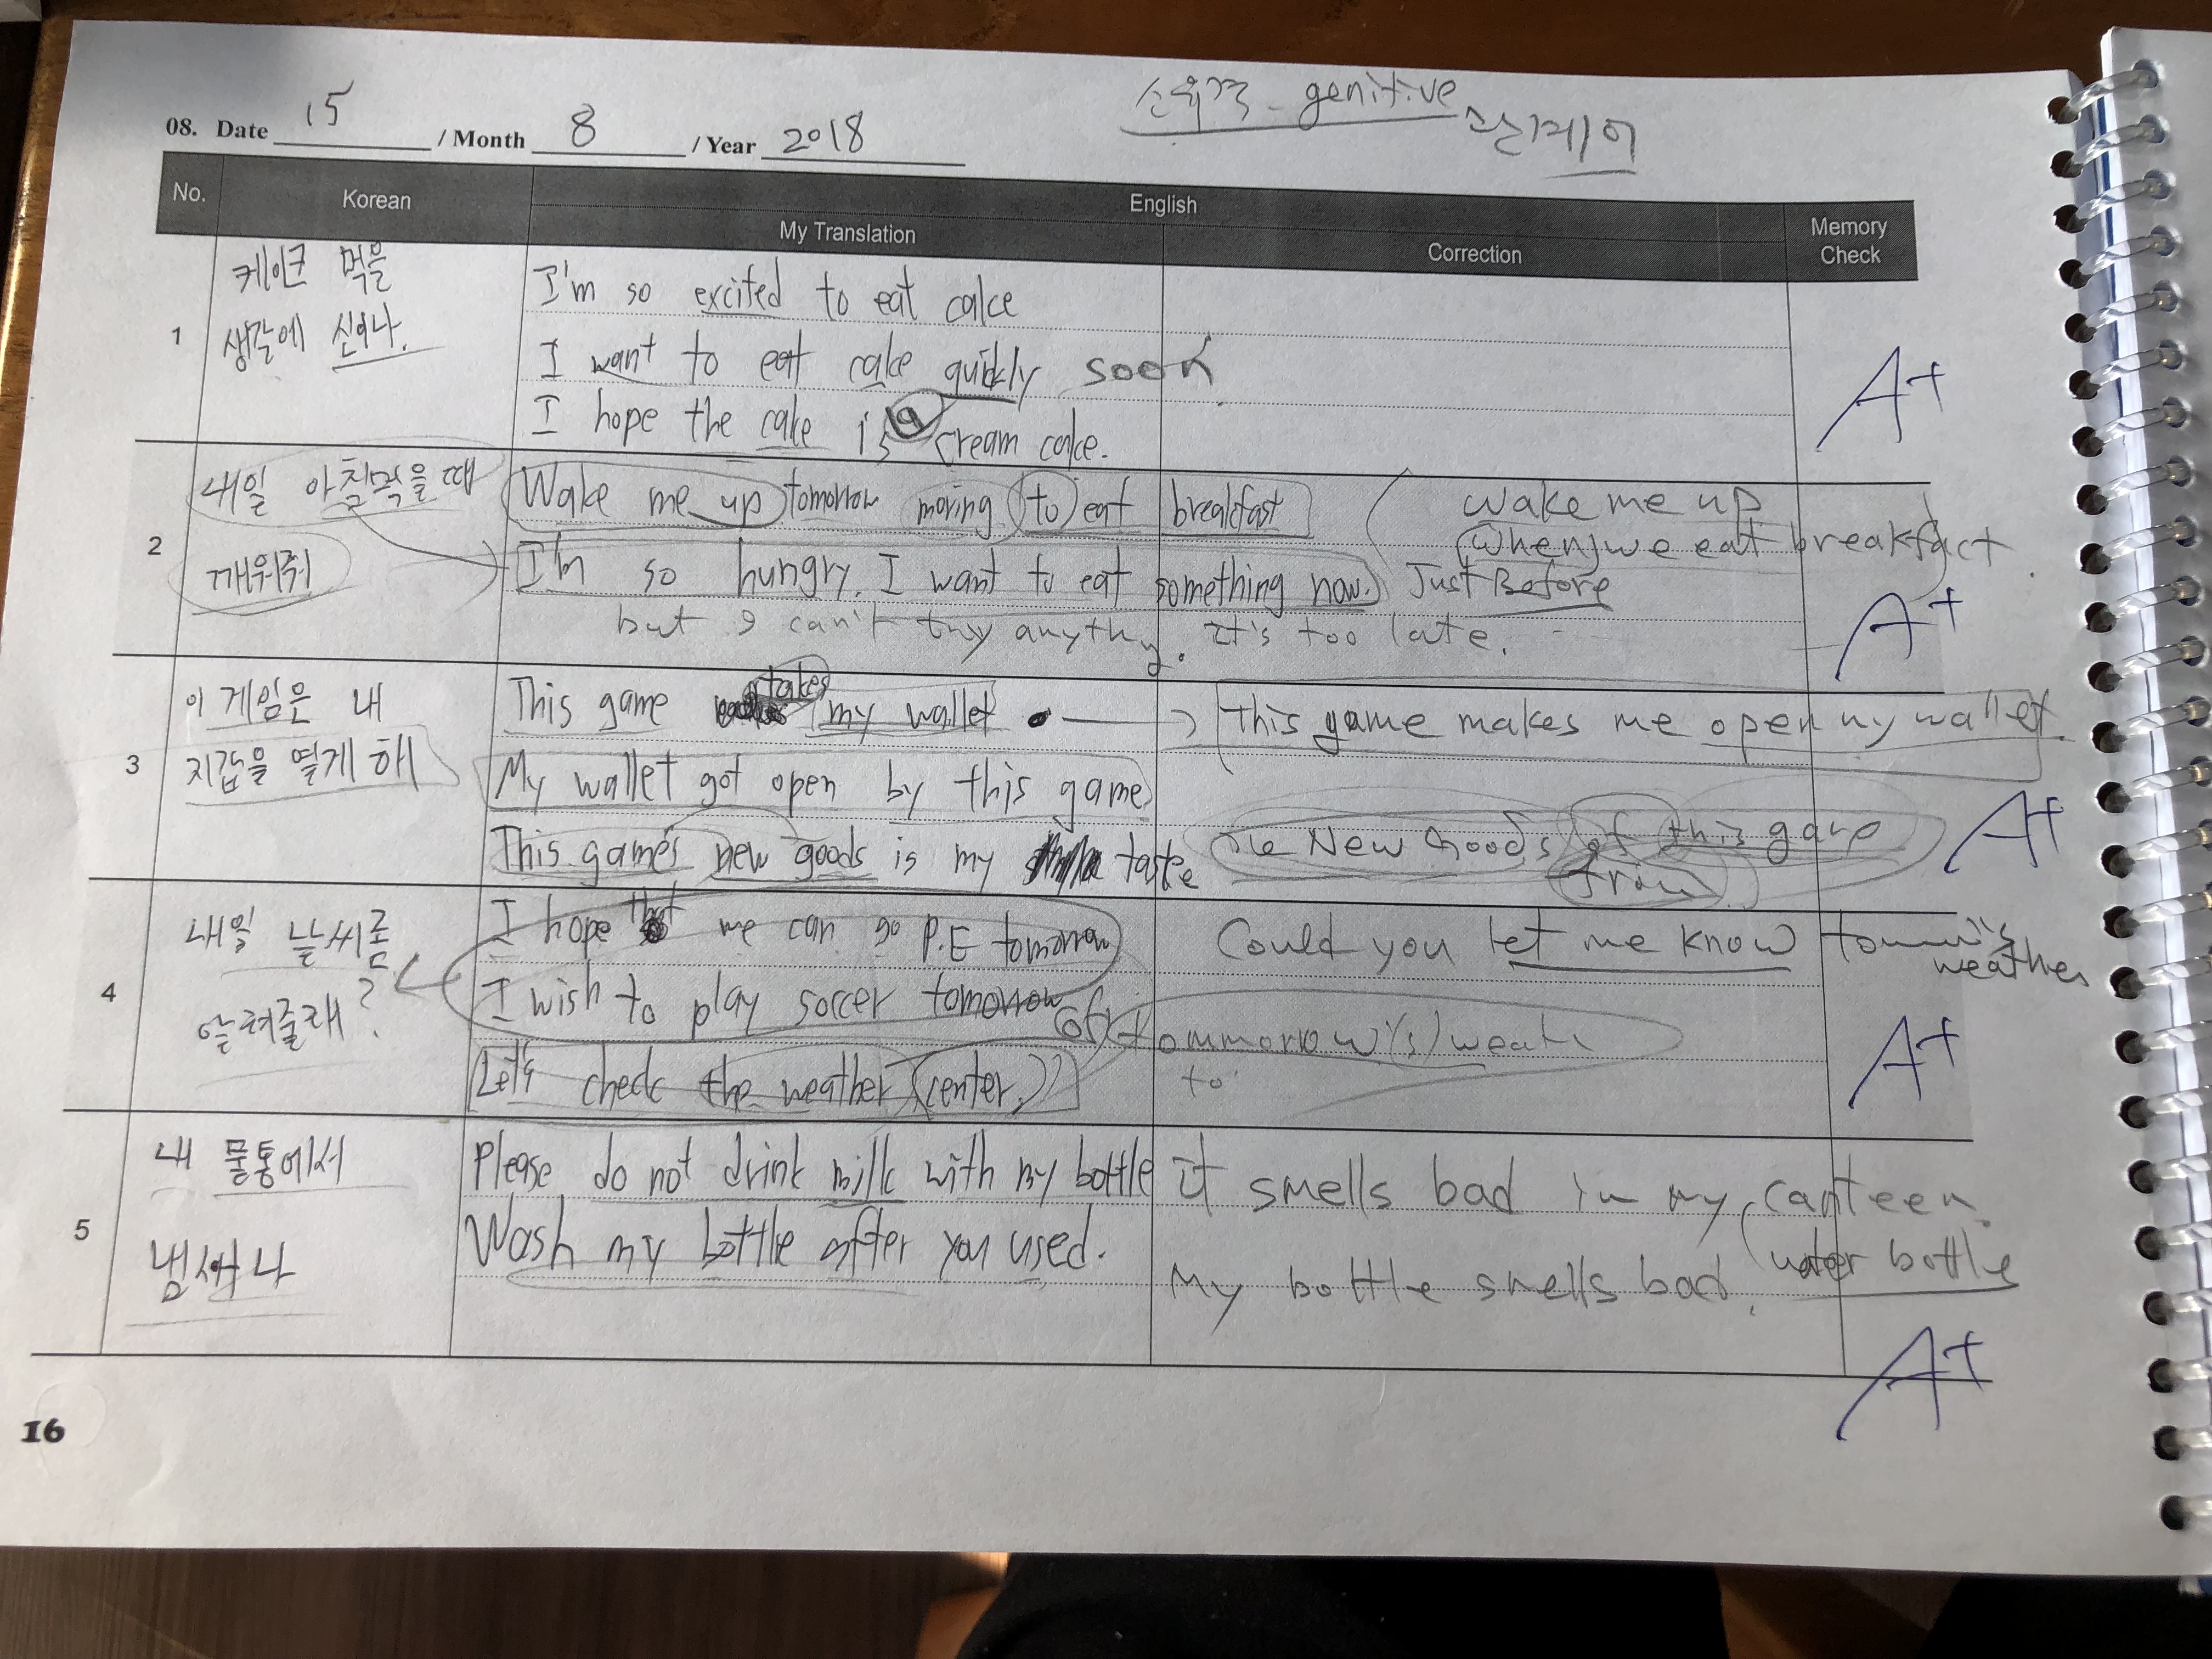 소유격 - genitive
관계어
08. Date 15 / Month 8 / Year 2018
No. Korean English
My Translation Correction Memory Check
1
케이크 먹을
생각에 신이나.
I'm so excited to eat cake
I want to eat cake quickly soon
I hope the cake is a cream cake.
A+
2
내일 아침먹을때
깨워줘
Wake me up tomorrow moring to eat breakfast
I'm so hungry. I want to eat something now.
but I can't try anythg. It's too late.
wake me up
(when) we eat breakfact.
Just Before
A+
3
이 게임은 내
지갑을 열게 해
This game takes my wallet
My wallet got open by this game
This game's new goods is my taste
This game makes me open my wallet.
New Goods of this game
from
A+
4
내일 날씨좀
알려줄래?
I hope that we can go P.E tomorrow
I wish to play soccer tomorrow
Let's check the weather (center.)
Could you let me know
weather
of tommorrow(s)
to
A+
5
내 물통에서
냄새나
Please do not drink milk with my bottle
Wash my bottle after you used.
It smells bad in my canteen.
My bottle smells bad. (water bottle
A+
16